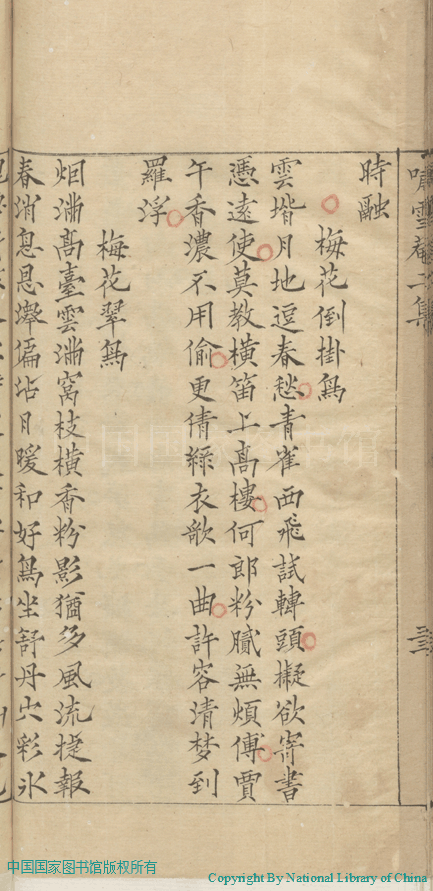 嘯雪菴二集
時融
梅花倒掛鳥
雲堦月地逗春愁青雀西飛試轉頭擬欲寄書
憑遠使莫教橫笛上髙樓何郎粉膩無煩傅賈
午香濃不用偷更倩綠衣歌一曲許容清梦到
羅浮
梅花翠鳥
烟滿髙臺雲滿窩枝橫香粉影猶多風流捷報
春消息恩澤偏沾月暖和好鳥坐舒丹穴彩氷
中国国家图书馆
中国国家图书馆版权所有
Copyright By National Library of China